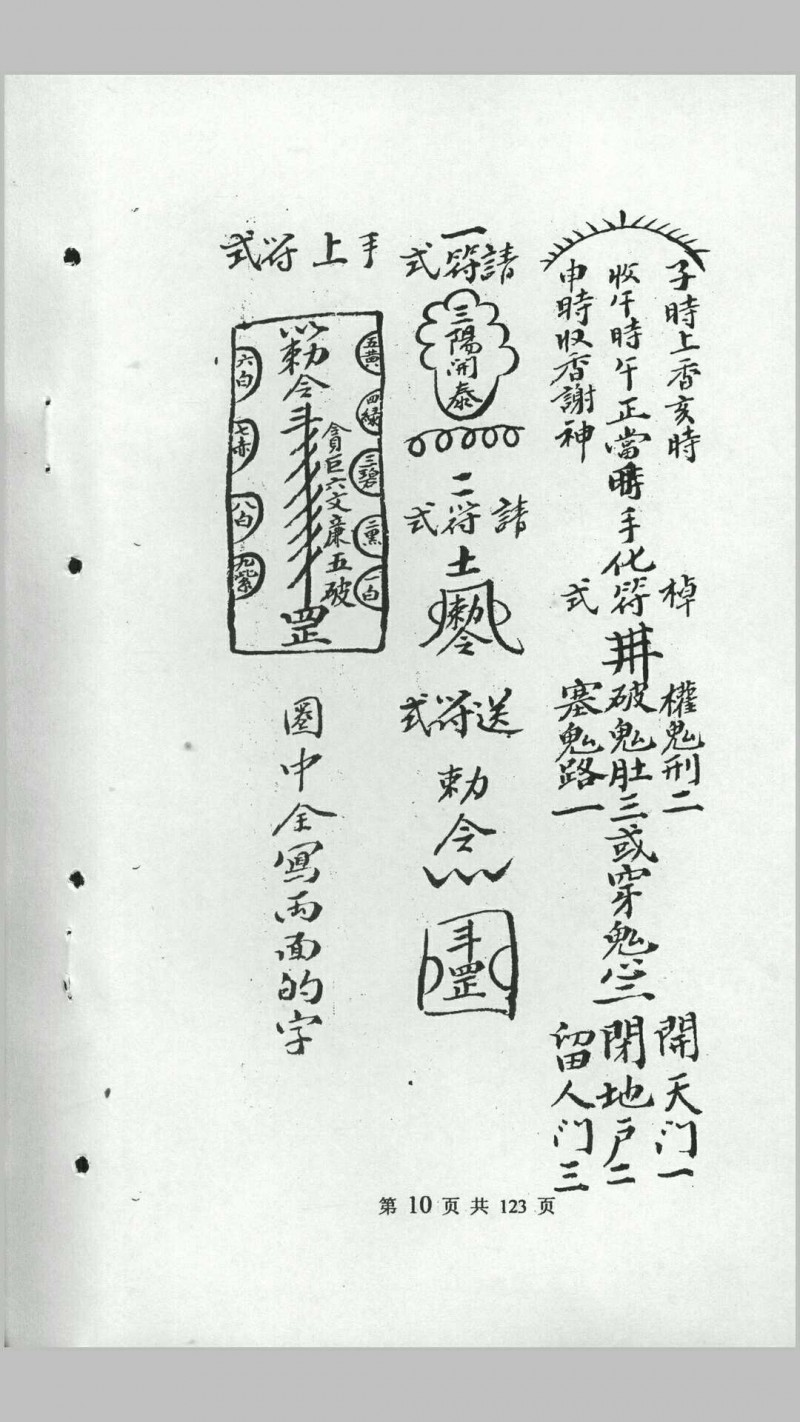 子時上香亥時
收午時午正當時手化符
申時收香謝神
棹符式
權鬼刑二
破鬼肚三或穿鬼心三
塞鬼路一
開天门一
閉地户二
留人门三
請符式一
三陽開泰
請符式二
土
勅令
送符式
勅令
斗罡
手上符式
五黄
四緑
三碧
二黑
一白
貪巨六文廉五破
勅令斗
罡
六白
七赤
八白
九紫
圈中全寫两面的字
第 10 页 共 123 页